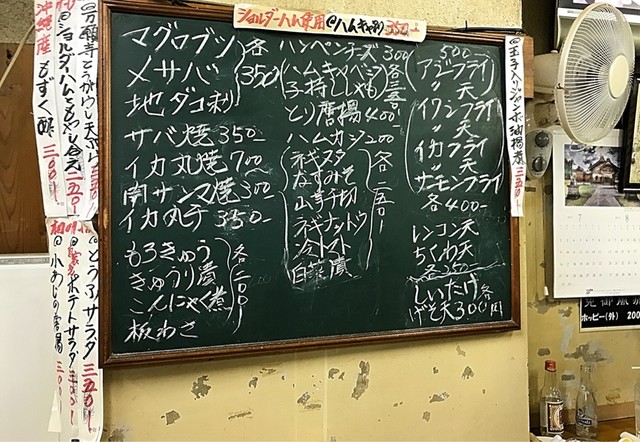 沖縄産もずく酢 三〇〇-
@ショルダーハムともやし合え 二五〇-
@万願寺とうがらし天ぷら 三五〇
@小あじの南蛮 三〇〇-
ポテトサラダ 三〇〇-
@とうふサラダ 三五〇-
マグロブツ
メサバ
地ダコ刺
各350
サバ焼 350-
イカ丸焼 700
南サンマ焼 300-
イカ丸干 350-
もろきゅう
きゅうり漬
こんにゃく煮
板わさ
各二〇〇-
@ハムキャベツ 350-
ハンペンチーズ 300
ハムキャベジ
子持ししゃも
各三五〇
とり唐揚 400-
ハムカツ 200
ネギヌタ
なすみそ
山芋千切
ネギナットウ
冷トマト
白菜漬
各二五〇-
500-
アジフライ
〃 天
イワシフライ
〃 天
イカフライ
〃 天
サーモンフライ
各400-
レンコン天
ちくわ天
各350
しいたけ
げそ天 各300円
三五〇-
7
8
ホッピー(外) 200